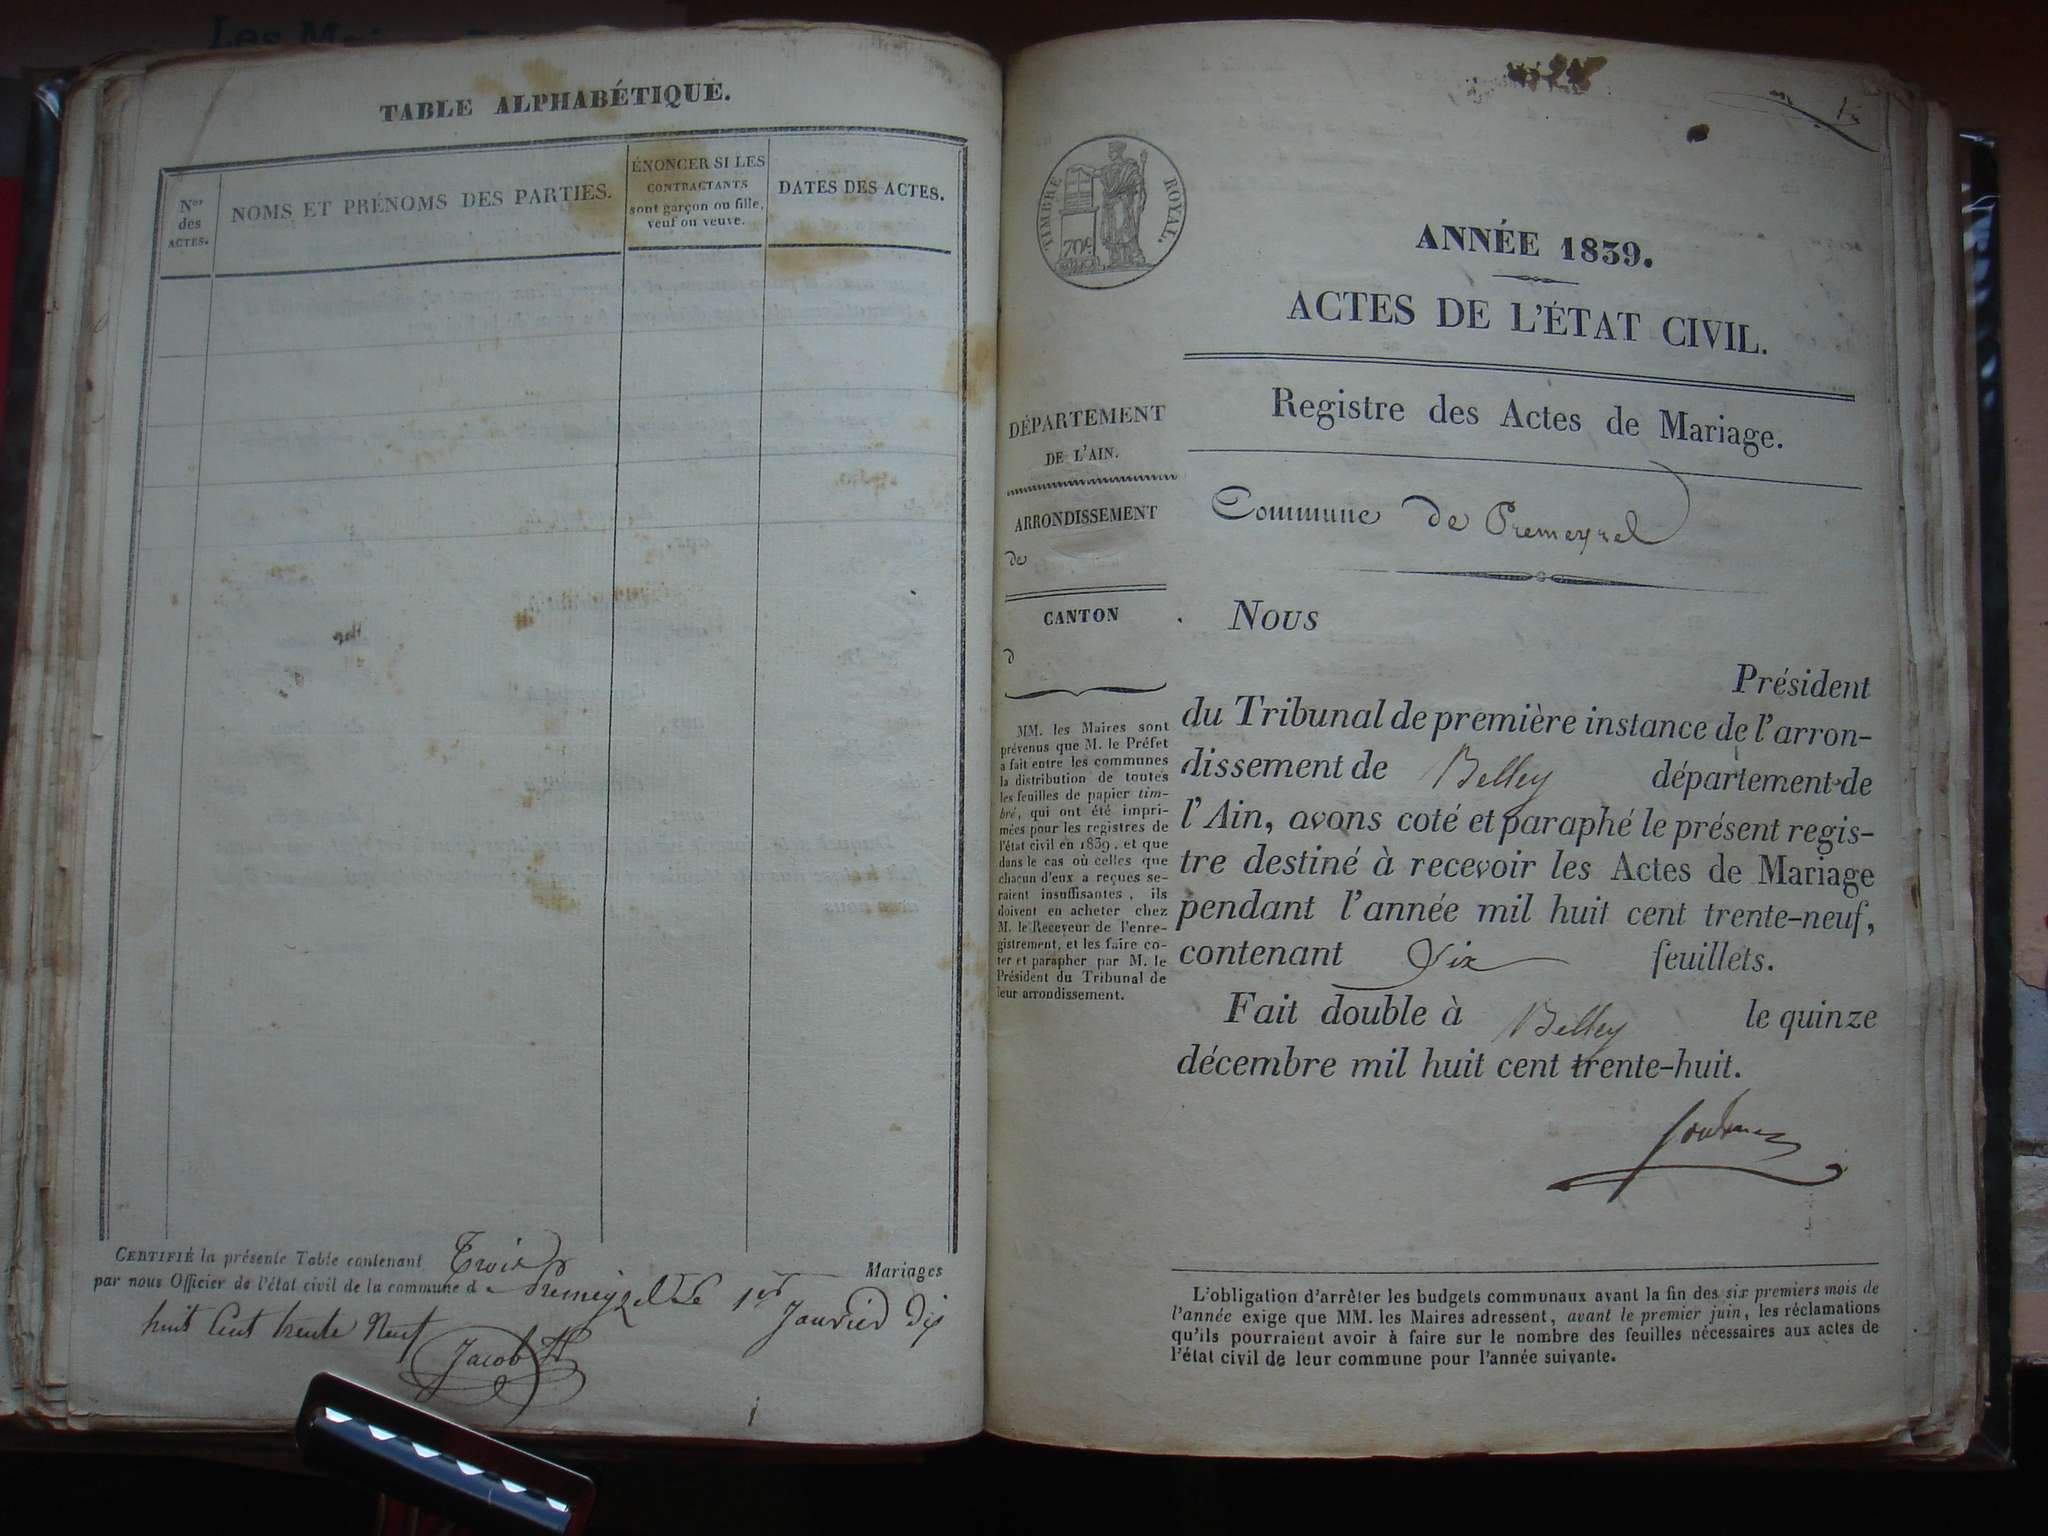 TABLE ALPHABÉTIQUE.
Nos des ACTES.
NOMS ET PRÉNOMS DES PARTIES.
ÉNONCER SI LES
CONTRACTANTS
sont garçon ou fille,
veuf ou veuve.
DATES DES ACTES.
CERTIFIÉ la présente Table contenant Trois Mariages
par nous Officier de l'état civil de la commune de Premeyzel Le 1er Janvier dix
huit Cent trente Neuf
Jacob
TIMBRE ROYAL.
70c
ANNÉE 1839.
ACTES DE L'ÉTAT CIVIL.
Registre des Actes de Mariage.
DÉPARTEMENT
DE L'AIN.
ARRONDISSEMENT
de
CANTON
d
MM. les Maires sont
prévenus que M. le Préfet
a fait entre les communes
la distribution de toutes
les feuilles de papier tim-
bré, qui ont été impri-
mées pour les registres de
l'état civil en 1839, et que
dans le cas où celles que
chacun d'eux a reçues se-
raient insuffisantes, ils
doivent en acheter chez
M. le Receveur de l'enre-
gistrement, et les faire co-
ter et parapher par M. le
Président du Tribunal de
leur arrondissement.
Commune de Premeyzel
Nous
Président
du Tribunal de première instance de l'arron-
dissement de Belley département de
l'Ain, avons coté et paraphé le présent regis-
tre destiné à recevoir les Actes de Mariage
pendant l'année mil huit cent trente-neuf,
contenant Six feuillets.
Fait double à Belley le quinze
décembre mil huit cent trente-huit.
L'obligation d'arrêter les budgets communaux avant la fin des six premiers mois de
l'année exige que MM. les Maires adressent, avant le premier juin, les réclamations
qu'ils pourraient avoir à faire sur le nombre des feuilles nécessaires aux actes de
l'état civil de leur commune pour l'année suivante.